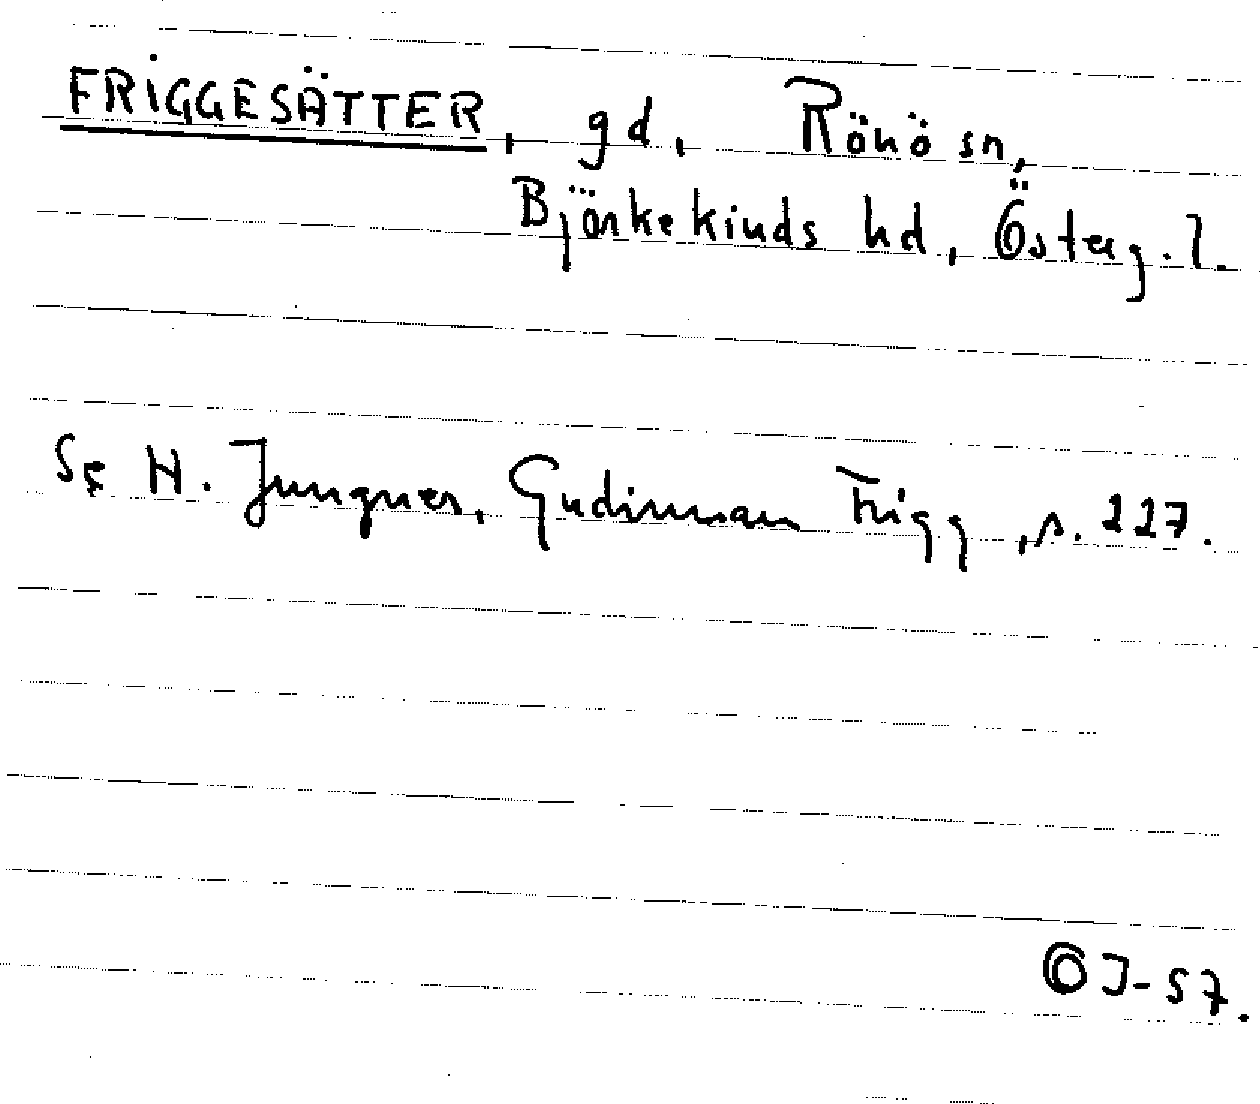 FRIGGESÄTTER, gd, Rönö sn,
Björkekinds hd, Österg. l.
Se H. Jungner, Gudinnan Frigg, s. 227.
©J-57.